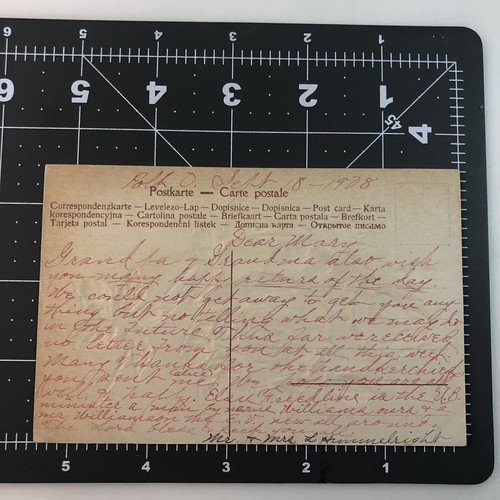 6 5 4 3 2 1
45 4
Sept 8 - 1928
Postkarte — Carte postale
Correspondenzkarte — Levelezo-Lap — Dopisnice — Dopisnica — Post card — Karta
korespondencyjna — Cartolina postale — Briefkaart — Carta postala — Brefkort —
Tarjeta postal — Korespondenční listek — Дописна карта — Открытое письмо
Dear Mary
Grandpa & Grandma also wish
you many happy return of the day.
We could not get away to get you any-
thing but no telling what we may do
in the future & thus far we received
no letter from you at all this week
Many thanks for the handkerchief
you sent me
well & happy is the U.B.
minister a man by name Williams ours a
Mr Williamson they all around
the Lord
Mr. & Mrs L Himmelright
5 4 3 2 1